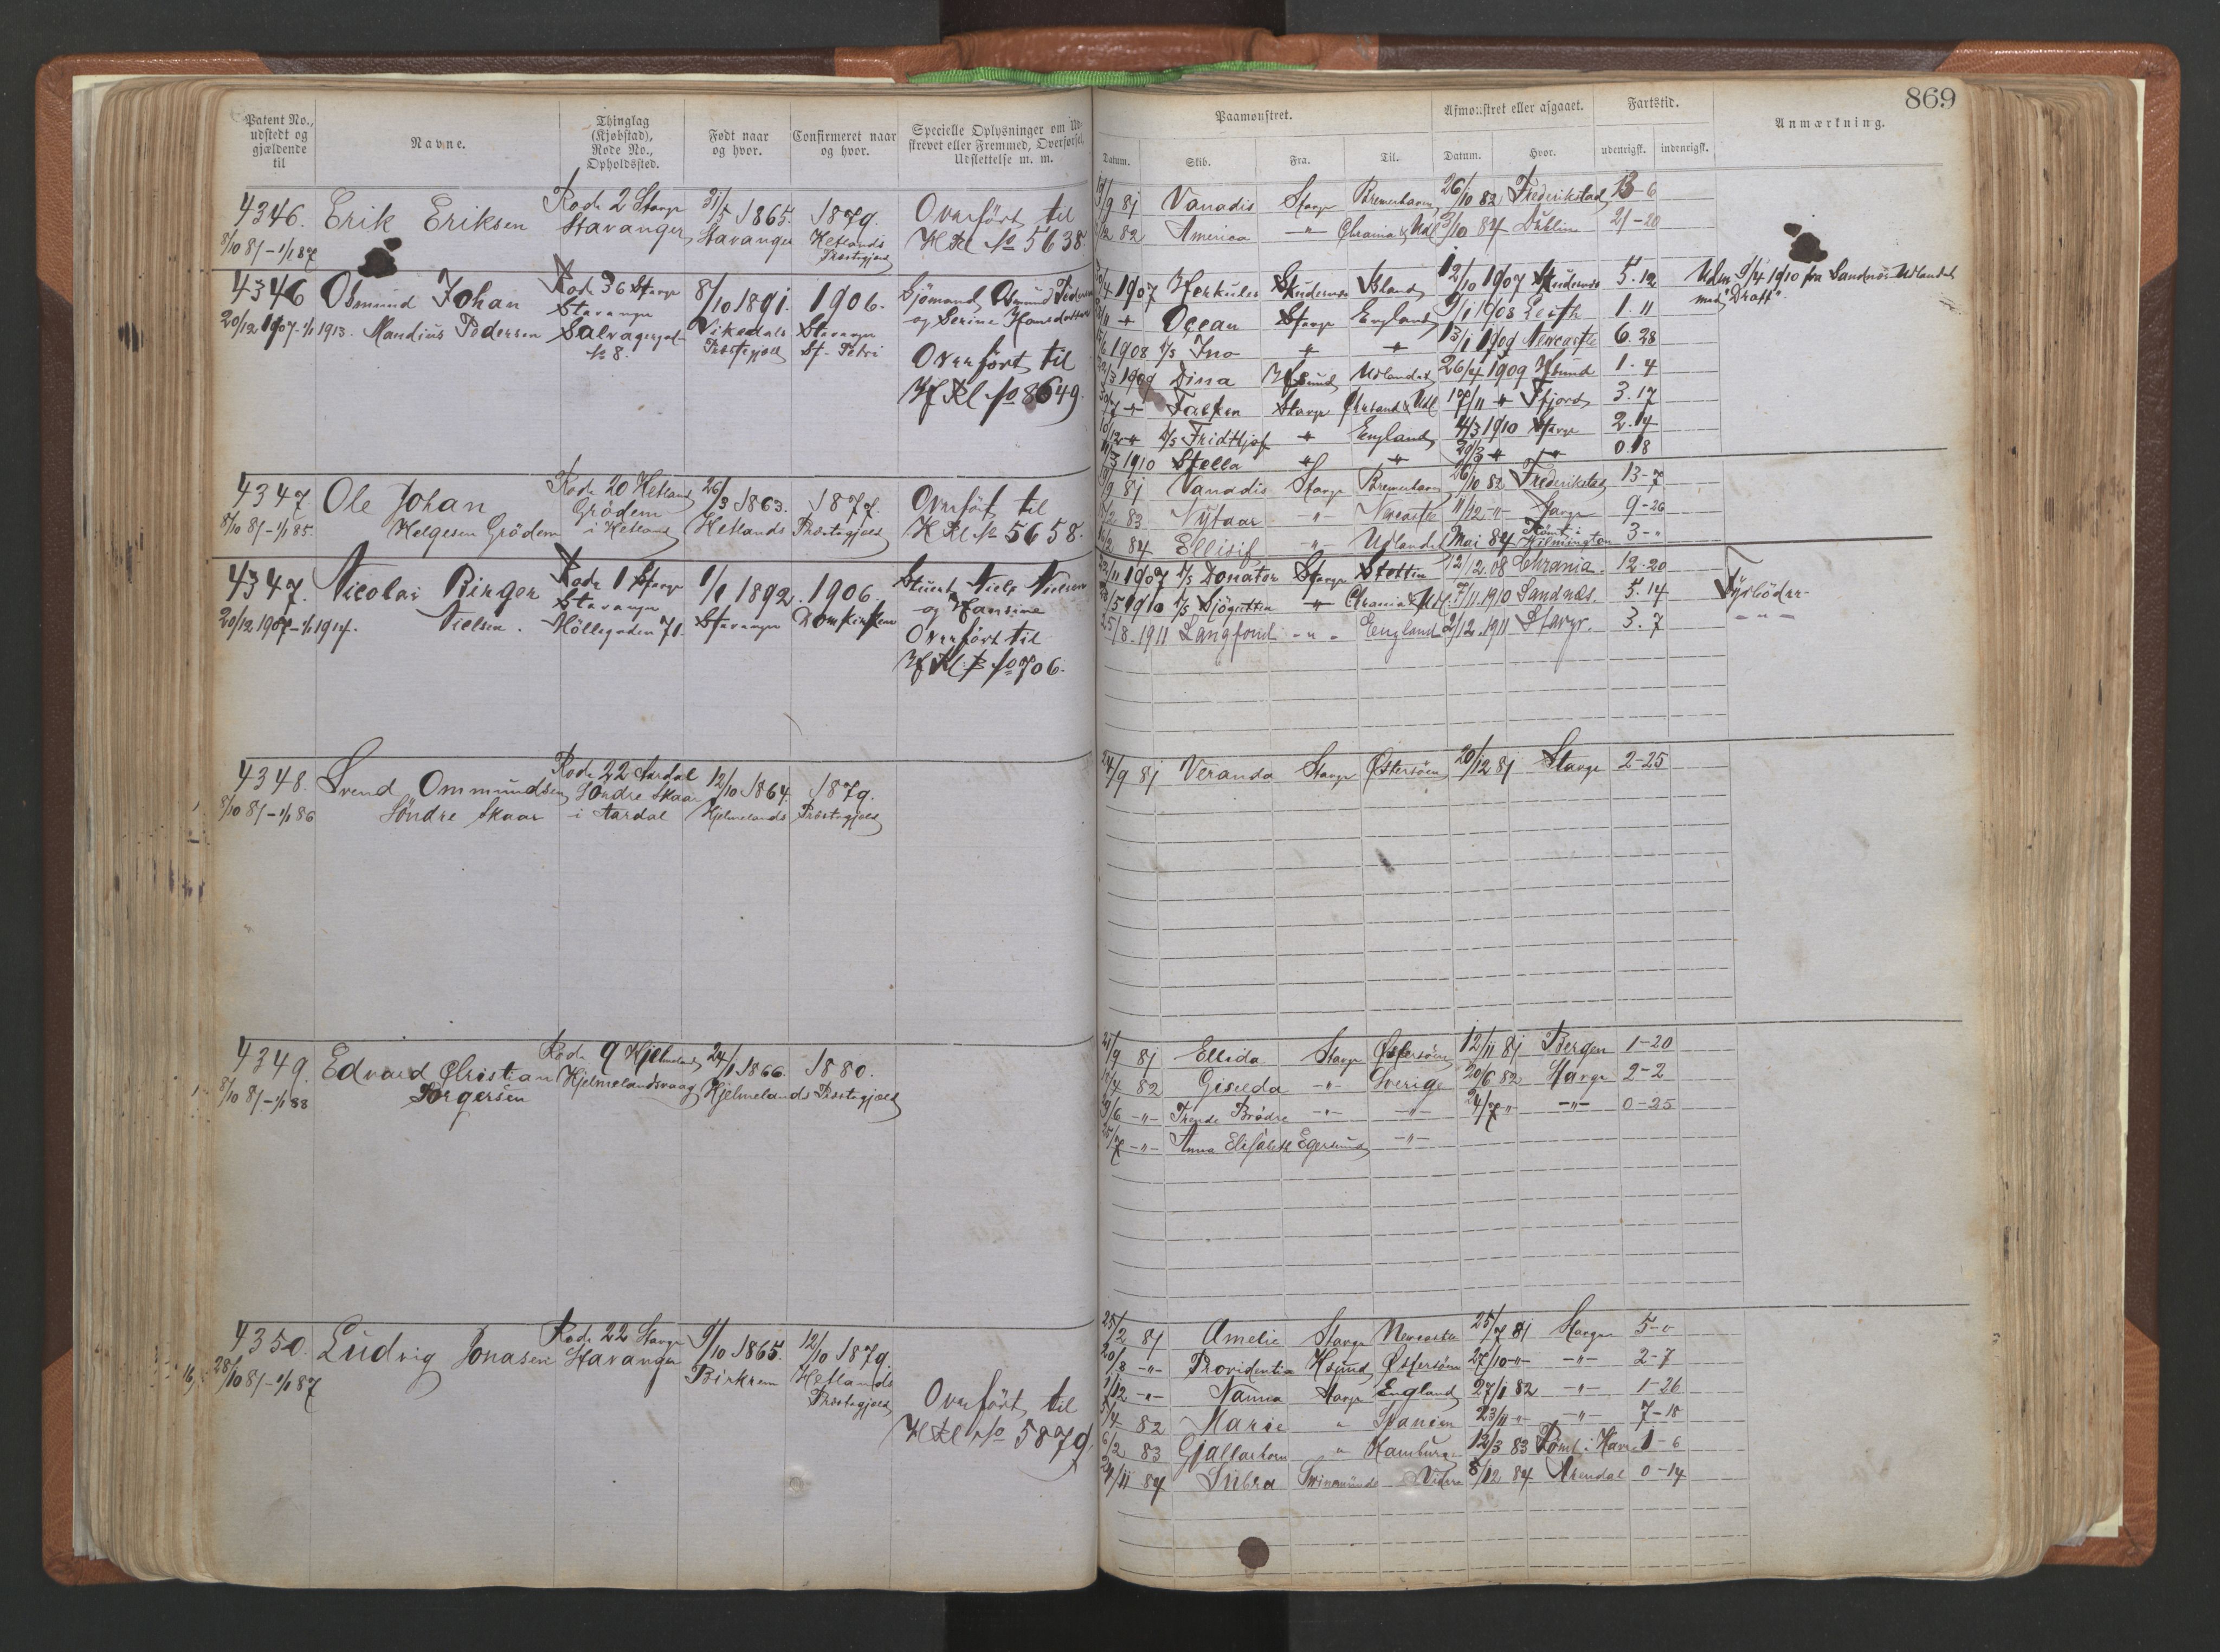 869
Patent No., udstedt og gjældende til
Navne.
Thinglag (Kjøbstad), Rode No., Opholdssted.
Født naar og hvor.
Confirmeret naar og hvor.
Specielle Oplysninger om Udskrevet eller Fremmed, Overførsel, Udslettelse m. m.
Paamønstret.
Afmønstret eller afgaaet.
Fartstid.
Anmærkning.
Datum. Skib. Fra. Til. Datum. Hvor. udenrigsk. indenrigsk.
4346. Erik Eriksen Rode 2 Stavgr 31/5 1865. 1879. Overført til
8/10 81 - 1/1 87 Stavanger Stavanger Hetlands Præstegjeld H Rl No 5638.
/9 81 Vanadis Stavgr Bremerhaven 26/10 82 Frederikstad 13-6
/12 82 America -"- Chrania & Udl 3/10 84 Dublin 21-20
4346 Osmund Johan Rode 36 Stavgr 8/10 1891. 1906. Sjömand Osmund Pedersen
20/12 1907 - 1/1 1913. Mandius Pedersen Stavanger Vikedals Stavanger og Serine Hansdatter
Præstegjeld St. Petri
No 8. Overført til
Hf Rl No 8649.
/4 1907 Herkules Skudesnes Island 12/10 1907 Skudesnes 5.12 Udm 9/4 1910 fra Sandnæs Udlandet
med "Draft".
/11 -"- Ocean Stavgr England 9/1 1908 Leith 1.11
1908 D/S Ino -"- -"- 13/1 1909 Newcastle 6.28
/3 1909 Dina Hfsund Udlandet 26/4 1909 Hfsund 1.4
/7 -"- Falken Stavgr Chrsand & Udl 17/11 -"- Ffjord 3.17
/12 -"- D/S Fridtjof -"- England 4/3 1910 Stavgr 2.14
/3 1910 Stella -"- -"- 29/3 -"- -"- 0.18
4347. Ole Johan Rode 20 Hetland 26/3 1863. 1877. Overført til
8/10 81 - 1/1 85. Helgesen Grödem Grödem i Hetland Hetlands Præstegjeld H Rl No 5658.
/9 81 Vanadis Stavgr Bremerhaven 26/10 82 Frederikstad 13-7
/2 83 Nytaar -"- Newcastle 11/12 -"- Stavgr 9-26
/2 84 Ellisif -"- Udlandet Mai 84 Rømt i Wilmington 3-"
4347. Nicolai Birger Rode 1 Stavgr 1/1 1892. 1906. Stuert Niels Nielsen
20/12 1907 - 1/1 1914. Nielsen. Stavanger Stavanger Domkirken og Hansine
Möllegaden 71. Overført til
Hf Rl B No 706.
/11 1907 D/S Donator Stavgr Stettin 12/12.08 Chrania. 12-20
/5 1910 D/S Sjögutten -"- Chrania & Udl. 7/11.1910 Sandnæs. 5.14 Fyrböder
25/8.1911 Langfond -"- England 2/12.1911 Stavgr. 3.7 -"-
4348. Svend Ommundsen Rode 22 Aardal 12/10 1864. 1879.
8/10 81 - 1/1 86 Söndre Skaar Söndre Skaar i Aardal Hjelmelands Præstegjeld
24/9 81 Veranda Stavgr Østersöen 20/12 81 Stavgr 2-25
4349. Edvard Christian Rode 9 Hjelmeland 24/1 1866. 1880.
8/10 81 - 1/1 88 Törgersen Hjelmelandsvaag Hjelmelands Præstegjeld
21/9 81 Ellida Stavgr Østersöen 12/11 81 Bergen 1-20
/4 82 Giselda -"- Sverige 20/6 82 Stavgr 2-2
/6 -"- Trende Brødre -"- -"- 24/7 -"- -"- 0-25
25/7 -"- Anna Elisabeth Egersund -"-
4350. Ludvig Jonasen Rode 22 Stavgr 9/10 1865. 12/10 1879.
28/10 81 - 1/1 87 Stavanger Birkrem Hetlands Præstegjeld
Overført til
H Rl No 5879.
25/2 81 Amelie Stavgr Newcastle 25/7 81 Stavgr 5-0
20/8 -"- Providentia Hsund Østersöen 27/10 -"- -"- 2-7
/12 -"- Nanna Stavgr England 27/1 82 -"- 1-26
5/4 82 Marie " Spanien 23/11 " -"- 7-18
6/2 83 Gjallarhorn " Hamburg 12/3 83 Rømt i Havre 1-6
24/11 84 Subra Swinemünde 8/12 84 Arendal 0-14